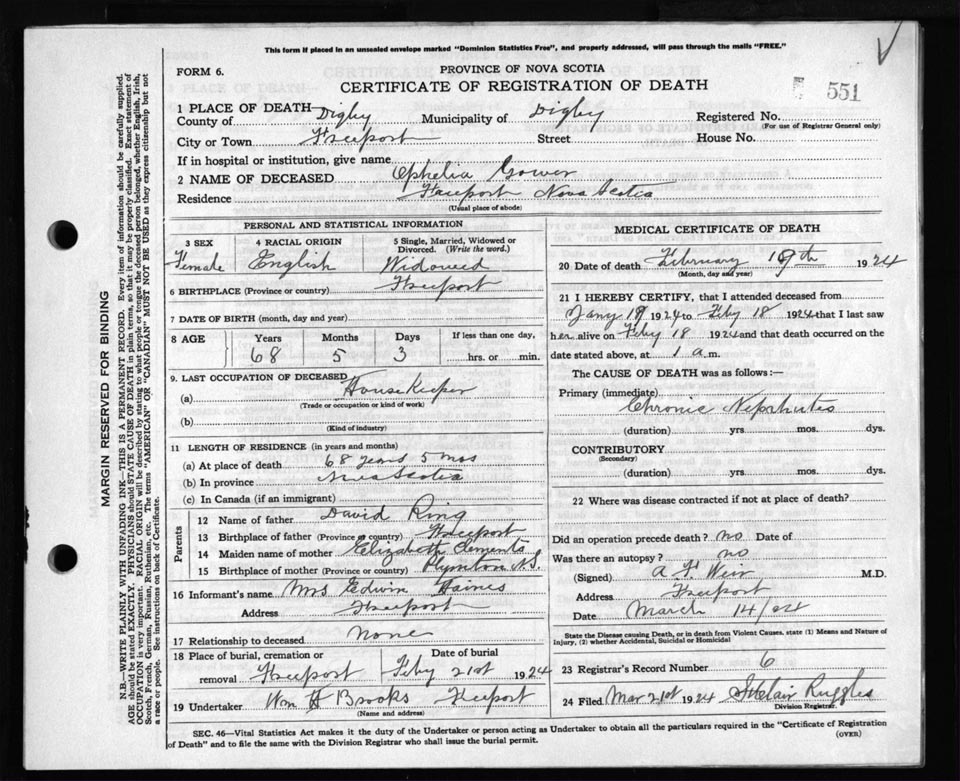 This form if placed in an unsealed envelope marked "Dominion Statistics Free", and properly addressed, will pass through the mails "FREE."
FORM 6.
PROVINCE OF NOVA SCOTIA
CERTIFICATE OF REGISTRATION OF DEATH
551
1 PLACE OF DEATH
County of Digby Municipality of Digby Registered No.
(For use of Registrar General only)
City or Town Freeport Street House No.
If in hospital or institution, give name
2 NAME OF DECEASED Ophelia Gower
Residence Freeport Nova Scotia
(Usual place of abode)
PERSONAL AND STATISTICAL INFORMATION
3 SEX 4 RACIAL ORIGIN 5 Single, Married, Widowed or Divorced. (Write the word.)
Female English Widowed
6 BIRTHPLACE (Province or country) Freeport
7 DATE OF BIRTH (month, day and year)
8 AGE Years Months Days If less than one day,
68 5 3 hrs. or min.
9. LAST OCCUPATION OF DECEASED
(a) House Keeper
(Trade or occupation or kind of work)
(b)
(Kind of industry)
11 LENGTH OF RESIDENCE (in years and months)
(a) At place of death 68 years 5 mos
(b) In province Nova Scotia
(c) In Canada (if an immigrant)
Parents
12 Name of father David Ring
13 Birthplace of father (Province or country) Freeport
14 Maiden name of mother Elizabeth Clements
15 Birthplace of mother (Province or country) Plymton N.S.
16 Informant's name Mrs Edwin Haines
Address Freeport
17 Relationship to deceased None
18 Place of burial, cremation or removal Freeport Date of burial Feby 21st 1924
19 Undertaker Wm H Brooks Freeport
(Name and address)
MEDICAL CERTIFICATE OF DEATH
20 Date of death February 19th 1924
(Month, day and year)
21 I HEREBY CERTIFY, that I attended deceased from
Jany 18 1924 to Feby 18 1924 that I last saw
her alive on Feby 18 1924 and that death occurred on the
date stated above, at 1 a.m.
The CAUSE OF DEATH was as follows:—
Primary (immediate)
Chronic Nephritis
(duration) yrs. mos. dys.
CONTRIBUTORY
(Secondary)
(duration) yrs. mos. dys.
22 Where was disease contracted if not at place of death?
Did an operation precede death? no Date of
Was there an autopsy? no
(Signed) A. F. Weir M.D.
Address Freeport
Date March 14/24
State the Disease causing Death, or in death from Violent Causes, state (1) Means and Nature of
Injury, (2) whether Accidental, Suicidal or Homicidal
23 Registrar's Record Number 6
24 Filed Mar 21st 1924 StClair Ruggles
Division Registrar.
SEC. 46—Vital Statistics Act makes it the duty of the Undertaker or person acting as Undertaker to obtain all the particulars required in the "Certificate of Registration
of Death" and to file the same with the Division Registrar who shall issue the burial permit.
(OVER)
MARGIN RESERVED FOR BINDING
N.B.—WRITE PLAINLY WITH UNFADING INK—THIS IS A PERMANENT RECORD. Every item of information should be carefully supplied.
AGE should be stated EXACTLY. PHYSICIANS should STATE CAUSE OF DEATH in plain terms, so that it may be properly classified. Exact statement of
OCCUPATION is very important. RACIAL ORIGIN will be described by stating to what people or tongue the deceased person belonged, whether English, Irish,
Scotch, French, German, Russian, Ruthenian, etc. The terms "AMERICAN" OR "CANADIAN" MUST NOT BE USED as they express citizenship but not
a race or people. See instructions on back of Certificate.